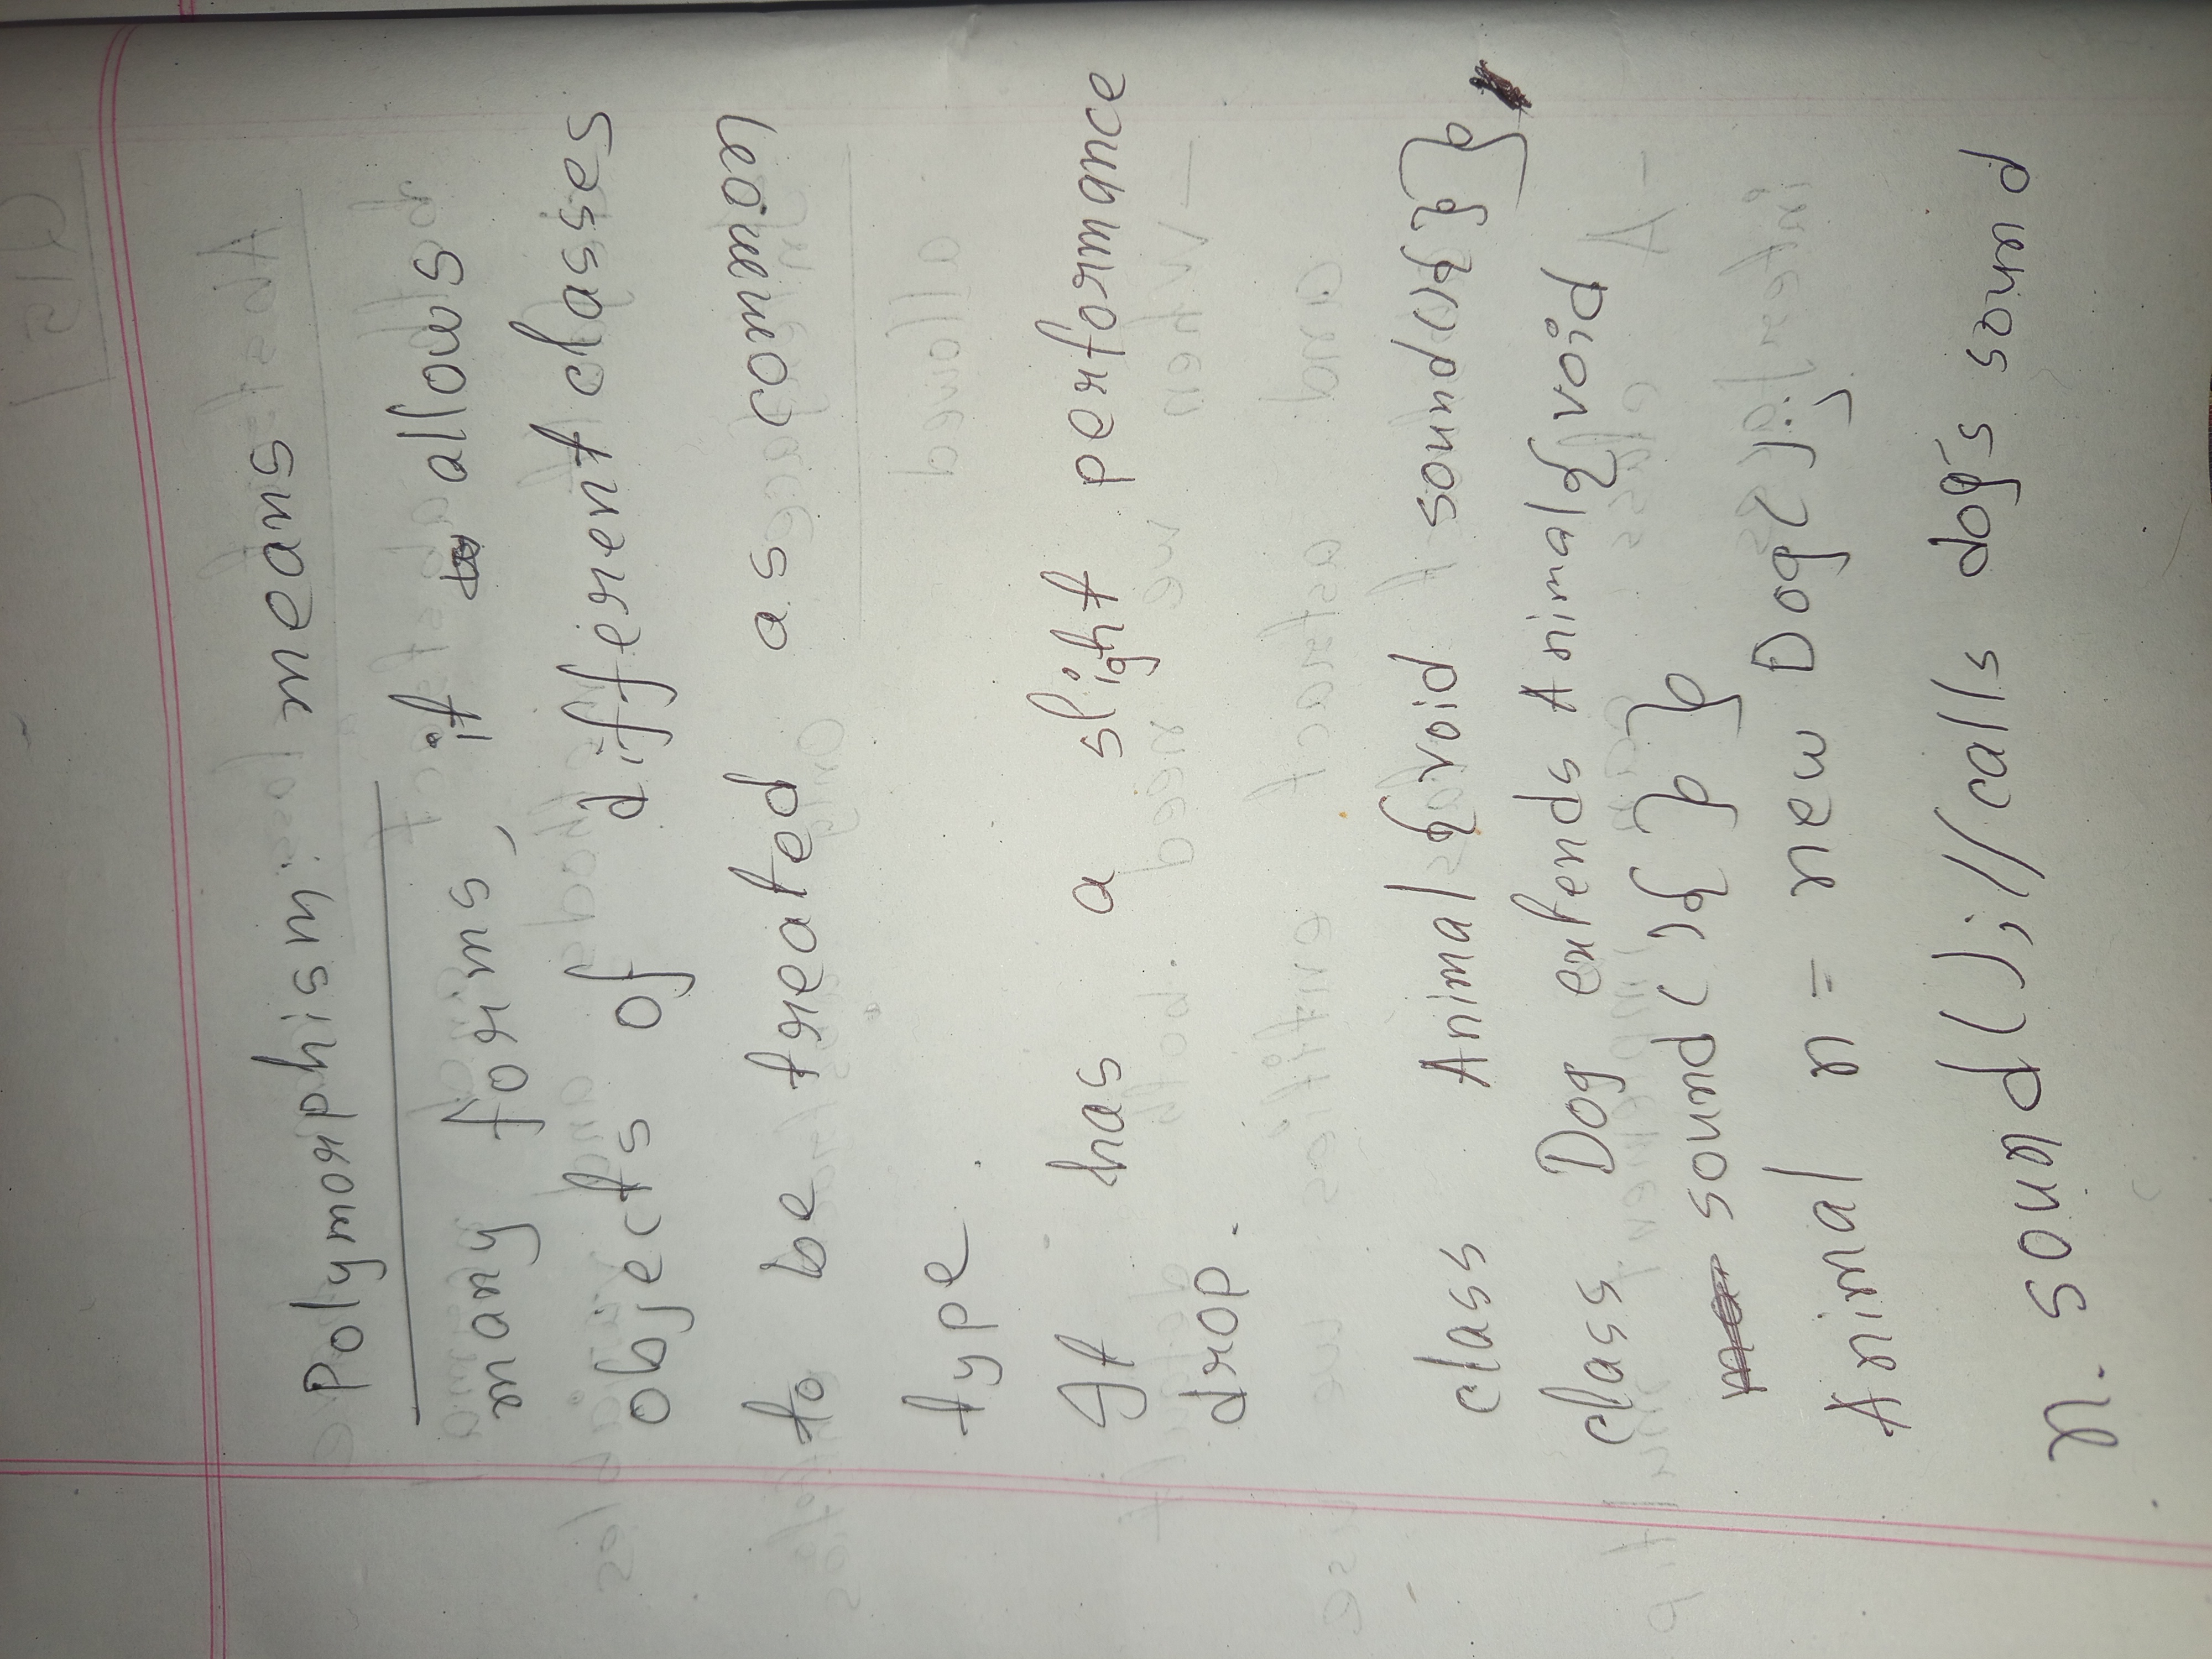 Polymorphism: means
many forms, it allows
objects of different classes
to be treated as common
type.
It has a slight performance
drop.
class Animal{void sound(){}}
class Dog extends Animal{void
sound(){ } }
Animal n = new Dog();
n. sound();//calls dog's sound